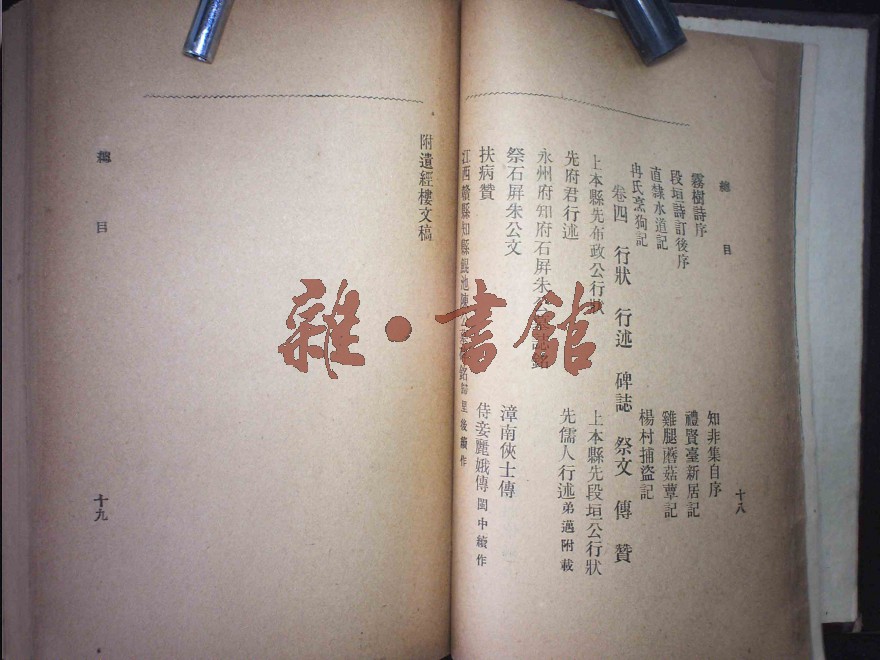 總目
十八
霧樹詩序
知非集自序
段垣詩訂後序
禮賢臺新居記
直隸水道記
雞腿蘑菇蕈記
冉氏烹狗記
楊村捕盜記
卷四 行狀 行述 碑誌 祭文 傳 贊
上本縣先布政公行狀
上本縣先段垣公行狀
先府君行述
先儒人行述弟邁附載
永州府知府石屏朱公
祭石屏朱公文
漳南俠士傳
扶病贊
侍妾麗娥傳閩中續作
江西贛縣知縣鯤池陳 銘歸里後續作
附遺經樓文稿
總目
十九
雜·書館